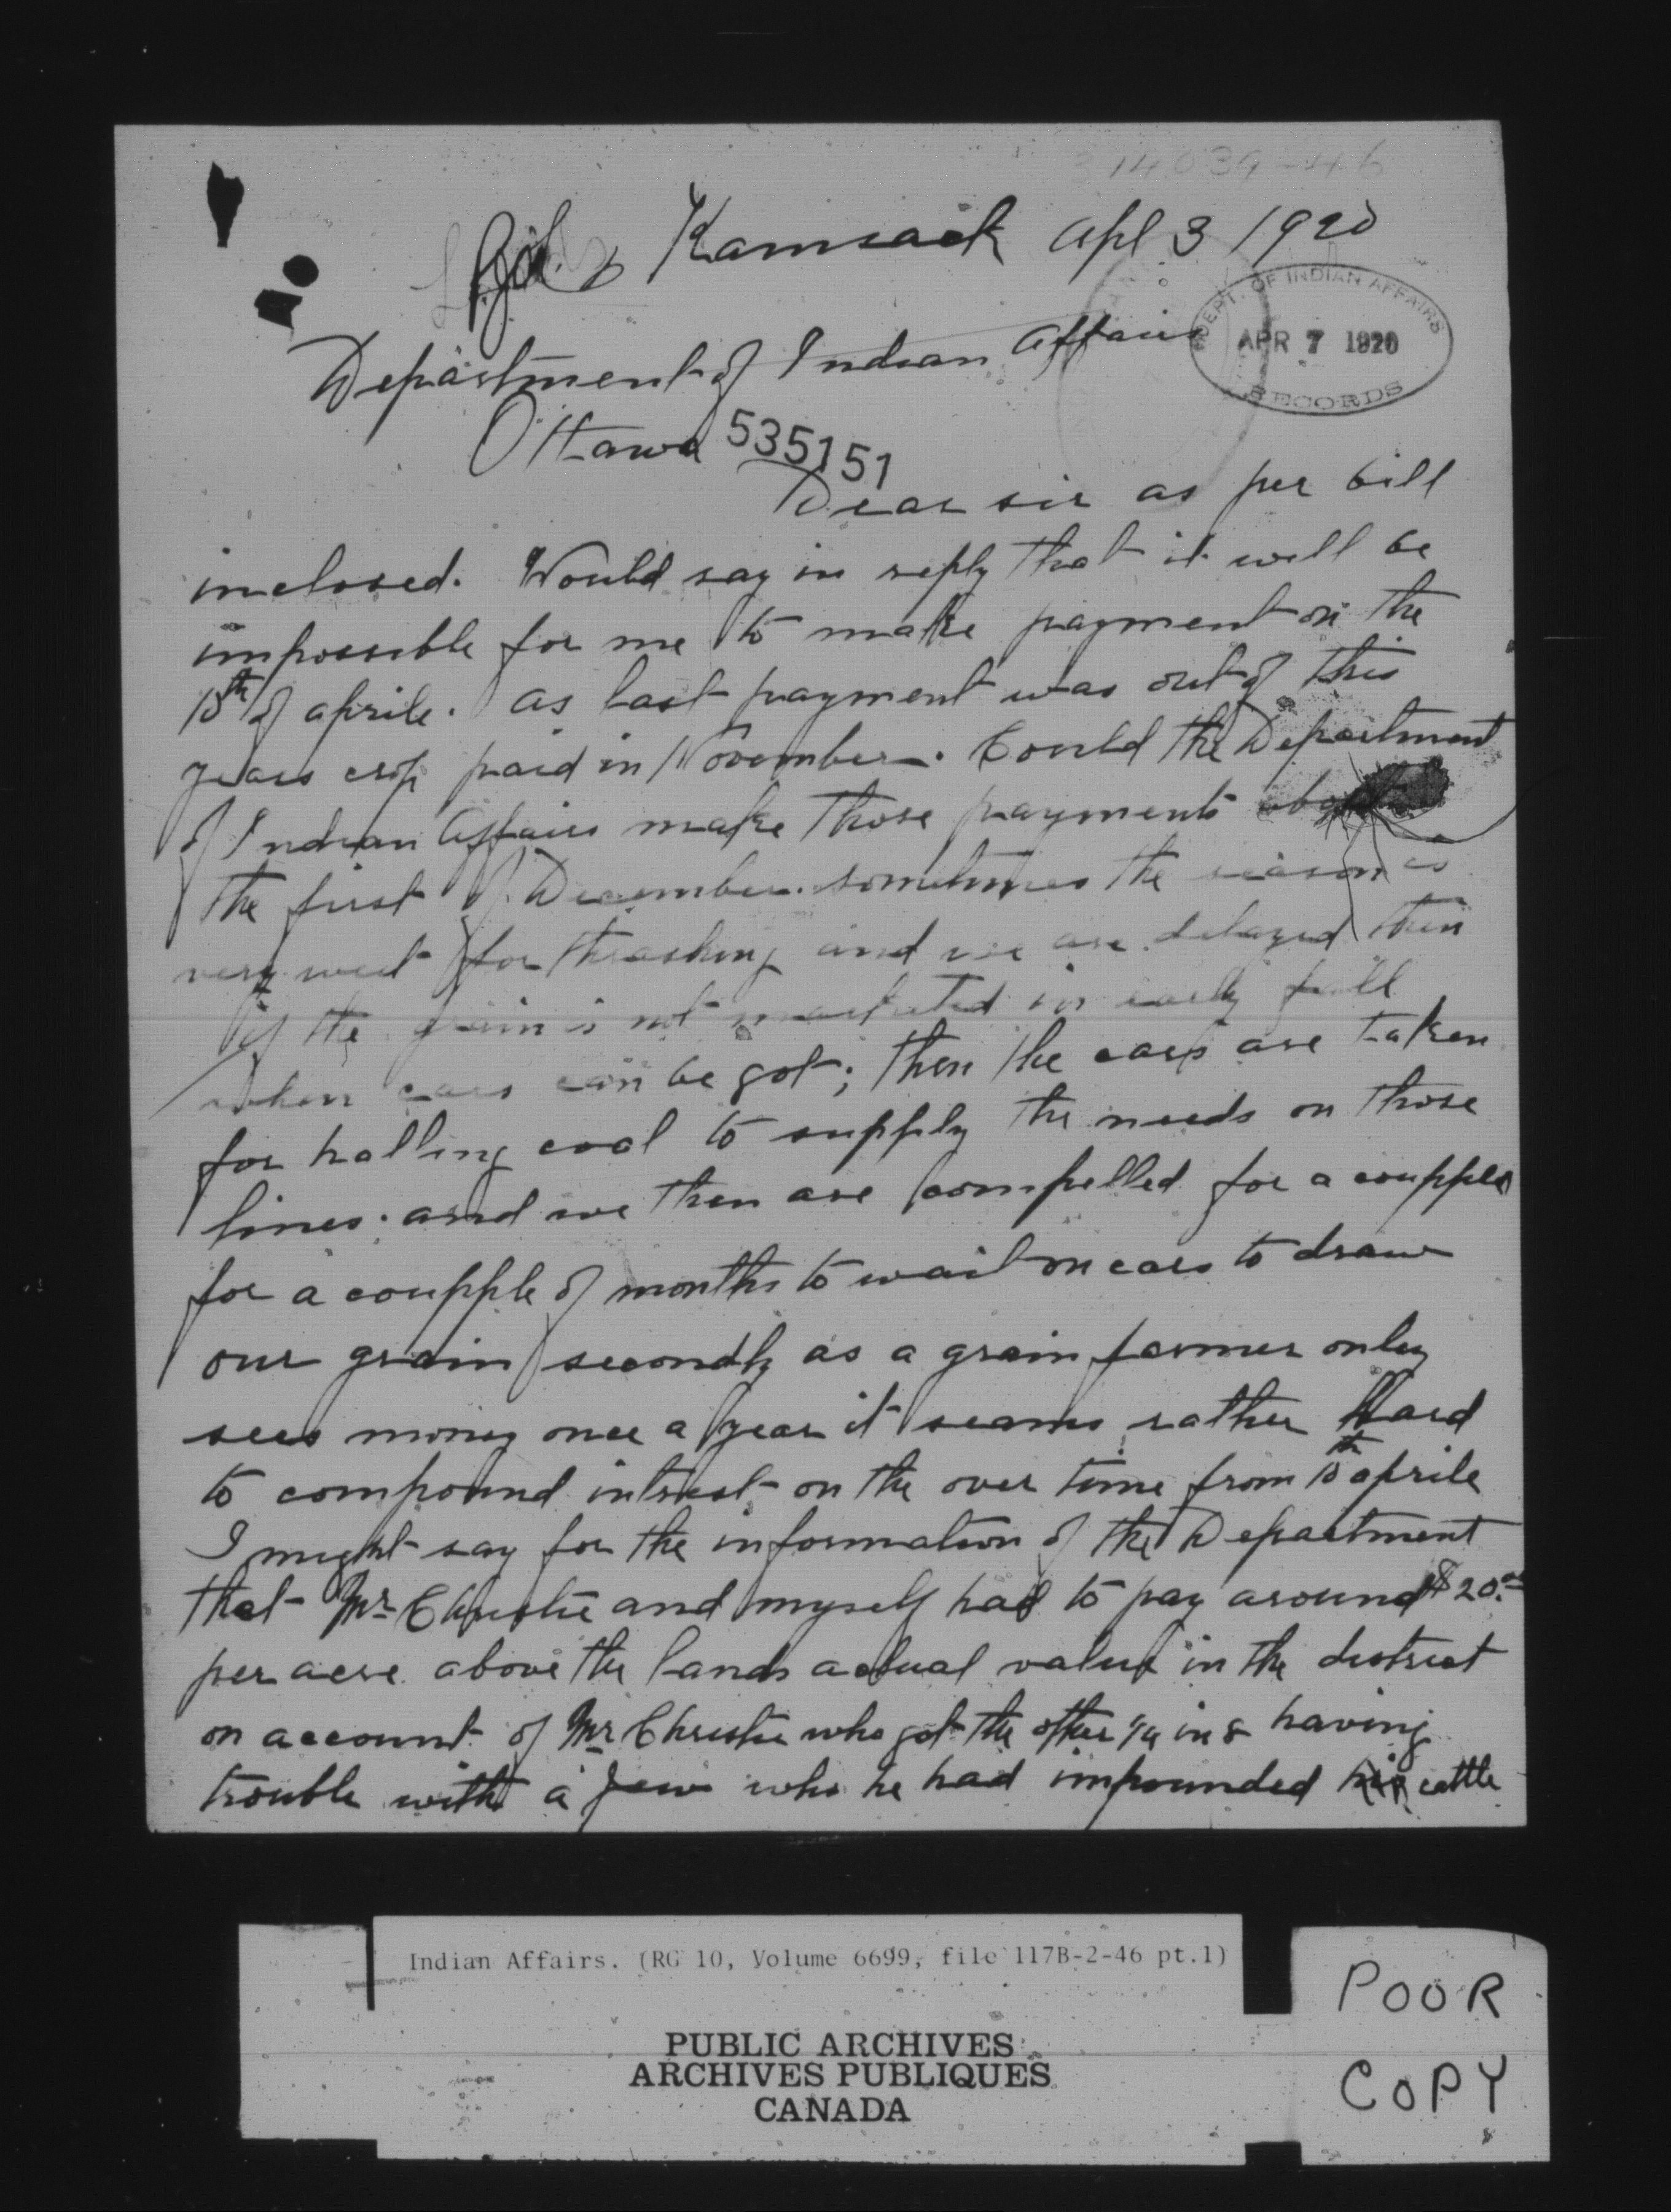 314039-46
Kamsack Apl 3 1920
DEPT. OF INDIAN AFFAIRS
APR 7 1920
RECORDS
Department of Indian Affairs
Ottawa 535151
Dear sir as per bill
inclosed. Would say in reply that it will be
impossible for me to make payment on the
15th of aprile. as last payment was out of this
years crop paid in November. Could the Department
of Indian Affairs make those payments about
the first of December. sometimes the season is
very weet for thrashing and we are delayed then
if the grain is not marketed in early fall
when cars can be got; then the cars are taken
for halling coal to supply the needs on those
lines. and we then are compelled for a coupple
for a coupple of months to wait on cars to draw
our grain secondly as a grain farmer only
sees money once a year it seams rather Hard
to compound intrest on the over time from 15th aprile
I might say for the information of the Department
that Mr Christie and myself had to pay around $20.00
per acre above the lands actual value in the district
on account of Mr Christie who got the other 1/4 in 8 having
trouble with a Jew who he had impounded his cattle
Indian Affairs. (RG 10, Volume 6699, file 117B-2-46 pt.1)
PUBLIC ARCHIVES
ARCHIVES PUBLIQUES
CANADA
POOR
COPY